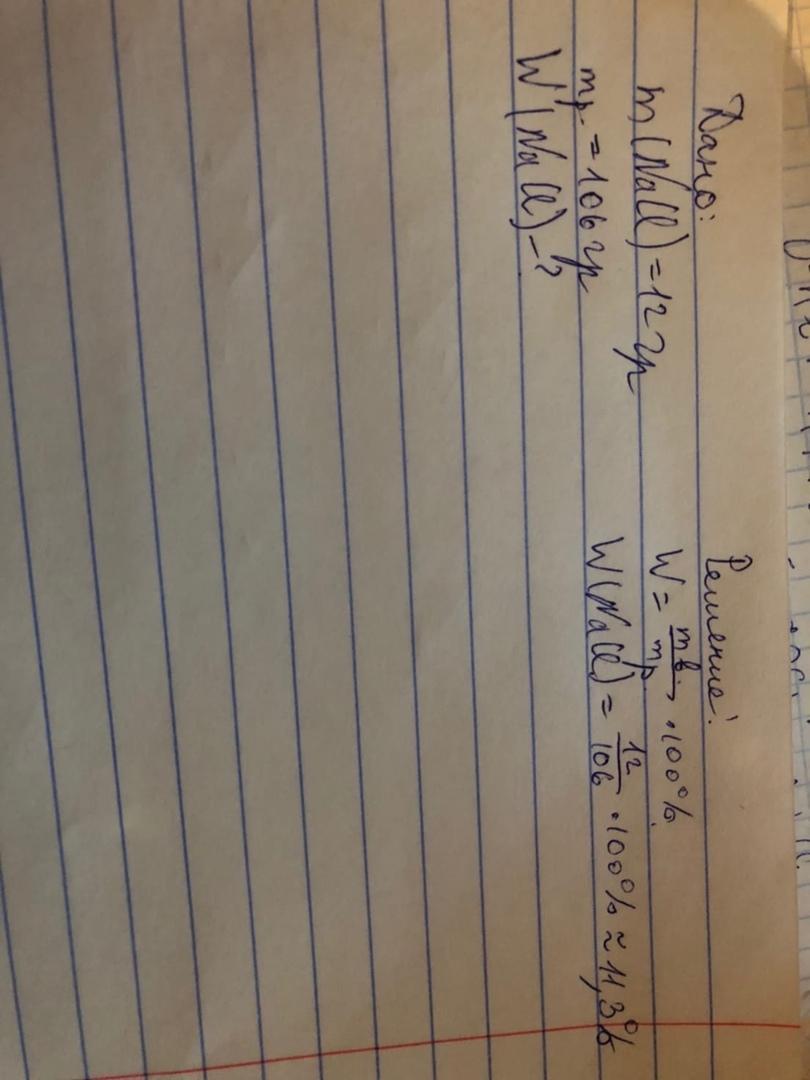 Дано:
m(NaCl) = 12 гр
mр. = 106 гр
W(NaCl) - ?
Решение:
W = mв. / mр. · 100%
W(NaCl) = 12 / 106 · 100% ≈ 11,3%